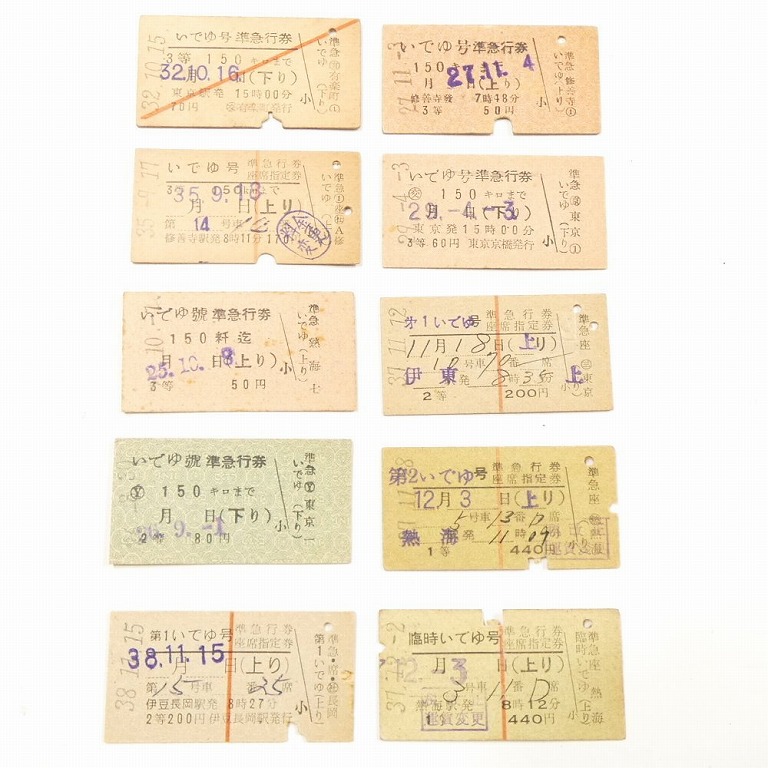 いでゆ号 準急行券
3等 150 キロまで
32.10.16.
月 日(下り)
東京駅発 15時00分
70円 有楽町発行
小
32.10.15
いでゆ (下り)
いでゆ号 準急行券
150 キロまで
27.11. 4
月 日(上り)
修善寺發 7時48分
3等 50円
小
準急 修善寺 1
いでゆ (上り)
いでゆ号 準急行券
座席指定券
3等 150キロまで
35.9.18
月 日(上り)
第 14 号車
修善寺駅発 8時11分
小
35.-9.17
いでゆ (上り)
いでゆ号 準急行券
150 キロまで
29.-4.-3
月 日(下り)
東京発 15時00分
3等 60円 東京京橋発行
小
29.-4.-3
いでゆ (下り)
いでゆ號 準急行券
150 粁迄
25.10.
月 日(上り)
3等 50円
小
準急 熱海 七
いでゆ (上り)
第1いでゆ号 準急行券
座席指定券
11月18日(上り)
号車 番 席
伊東発 8時35分 上
2等 200円
37.11.12
準急座 東京
いでゆ號 準急行券
150 キロまで
月 日(下り)
9.-1
2等 80円
小
準急 東京
いでゆ (下り)
第2いでゆ号 準急行券
座席指定券
12月3日(上り)
5号車 13番 D席
熱海発 11時09分
1等 440円
準急座
第1いでゆ号 準急行券
座席指定券
38.11.15
月 日(上り)
第15号車 番 35 席
伊豆長岡駅発 8時27分
2等 200円 伊豆長岡駅発行
小
38.11.15
準急・席 長岡
第1いでゆ(上り)
臨時いでゆ号 準急行券
座席指定券
12.-3
月 日(上り)
3号車 11 D
熱海駅発 8時12分
440円
種貨変更
小
準急座 熱海
臨時いでゆ